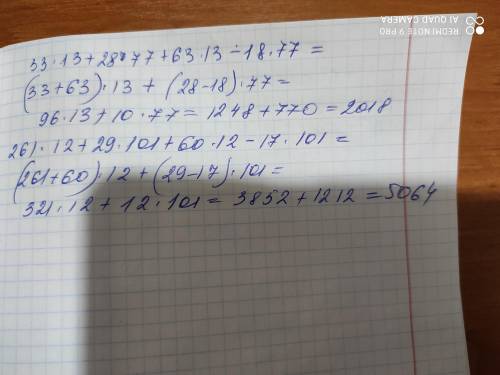 REDMI NOTE 9 PRO
AI QUAD CAMERA
33·13+28·77+63·13-18·77=
(33+63)·13+(28-18)·77=
96·13+10·77=1248+770=2018
261·12+29·101+60·12-17·101=
(261+60)·12+(29-17)·101=
321·12+12·101=3852+1212=5064